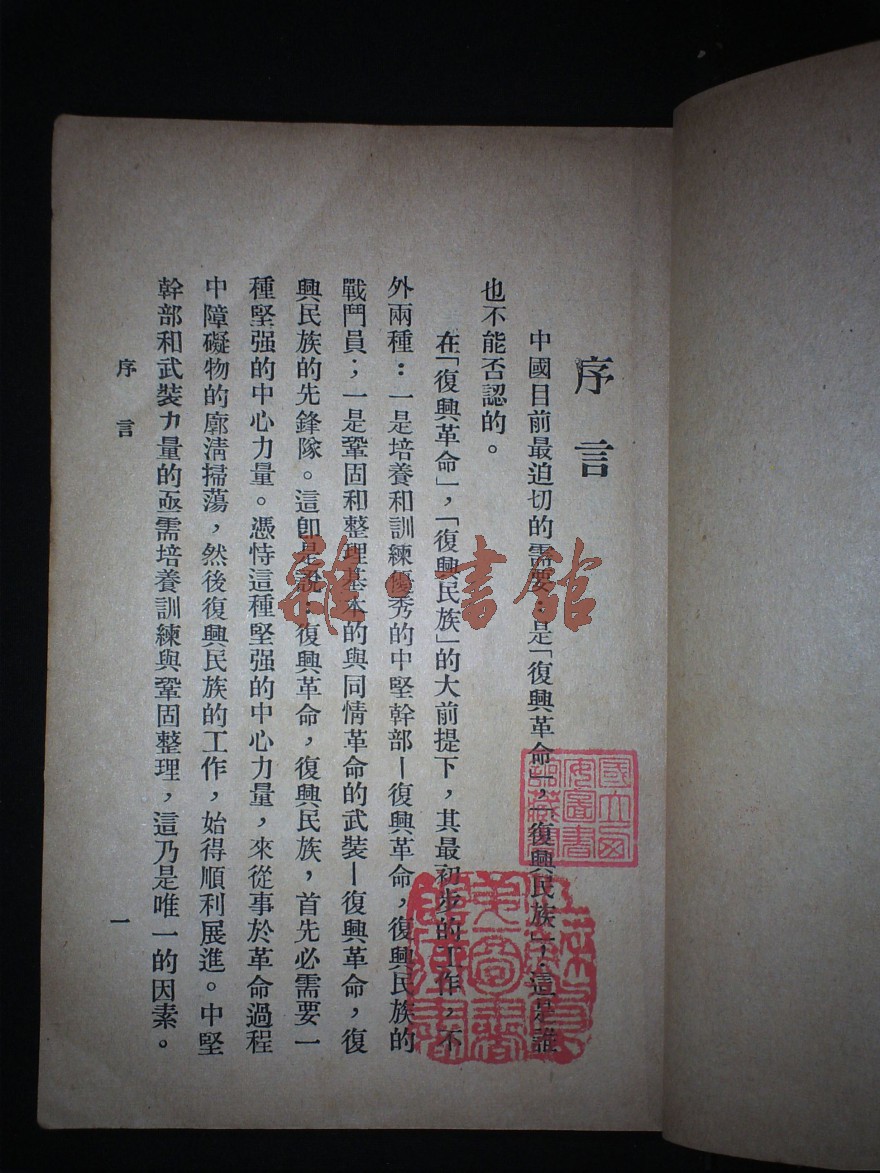 序言
中國目前最迫切的需要，是「復興革命」，「復興民族」；這是誰
也不能否認的。
在「復興革命」，「復興民族」的大前提下，其最初步的工作，不
外兩種：一是培養和訓練優秀的中堅幹部—復興革命，復興民族的
戰鬥員；一是鞏固和整理基本的與同情革命的武裝—復興革命，復
興民族的先鋒隊。這卽是說：復興革命，復興民族，首先必需要一
種堅强的中心力量。憑恃這種堅强的中心力量，來從事於革命過程
中障礙物的廓淸掃蕩，然後復興民族的工作，始得順利展進。中堅
幹部和武裝力量的亟需培養訓練與鞏固整理，這乃是唯一的因素。
序言
一
雜·書館